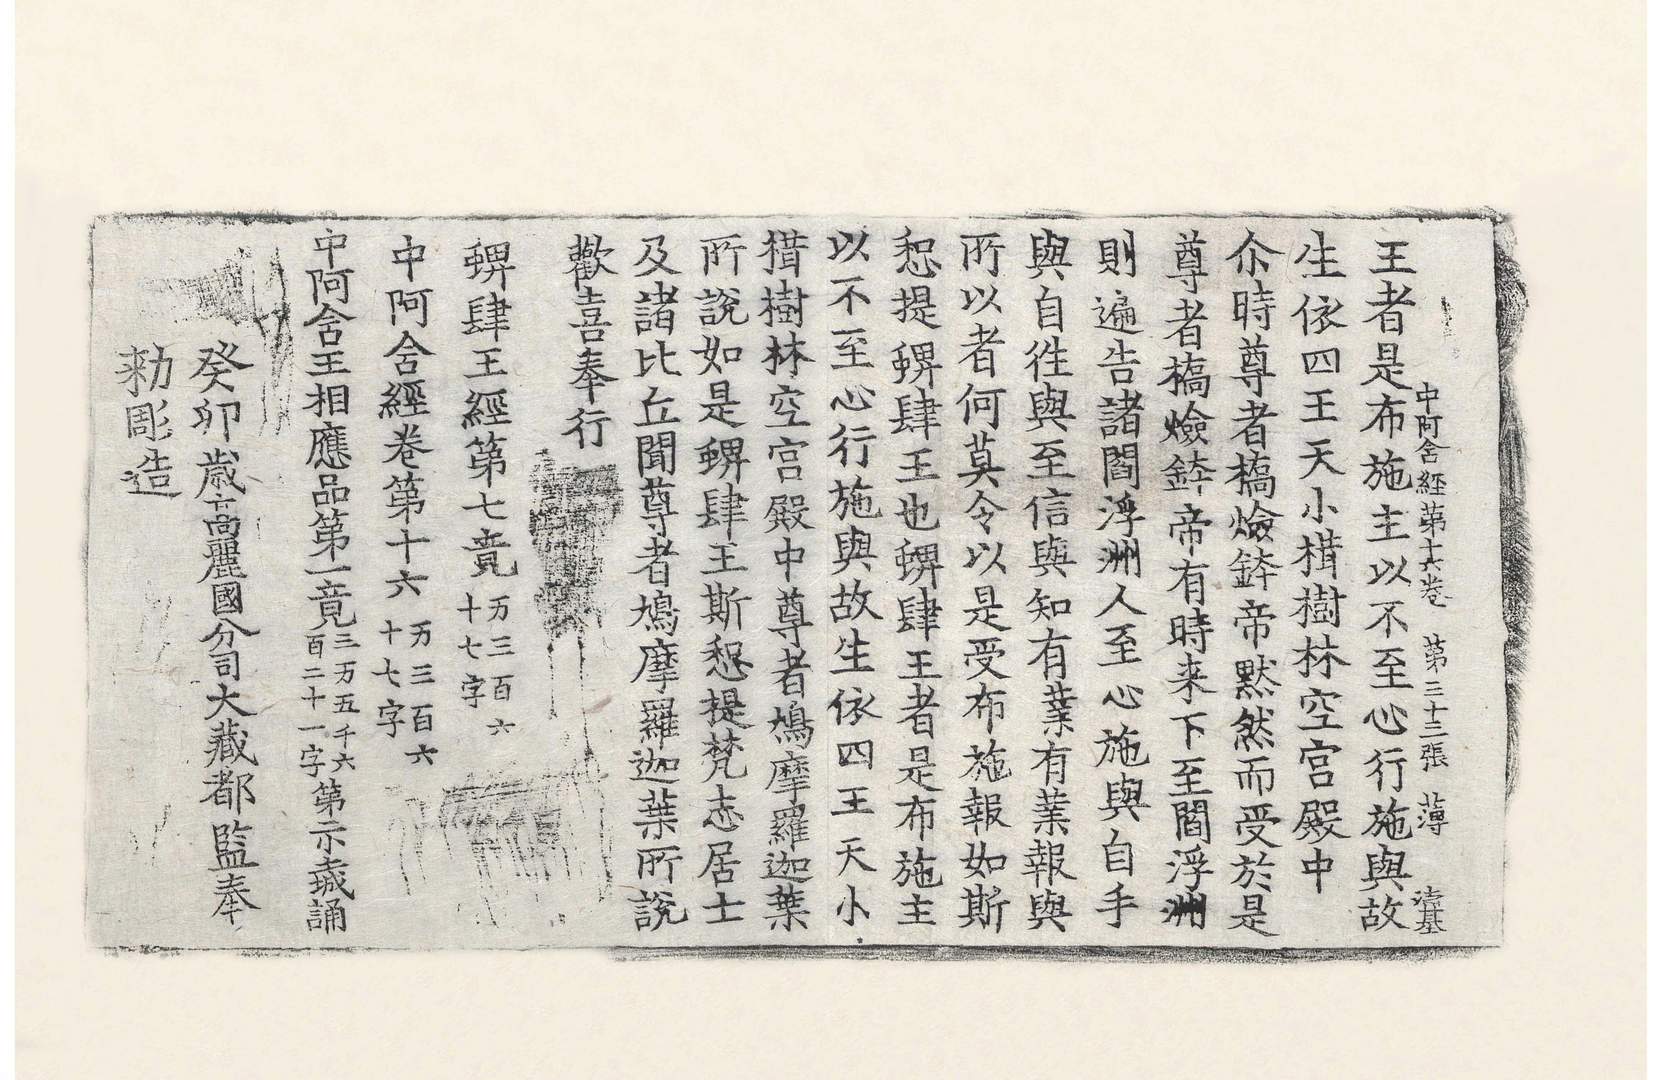 中阿含經第十六卷　第三十三張　薄
王者是布施主以不至心行施與故
生依四王天小楮樹林空宮殿中
尒時尊者橋燄鉢帝默然而受於是
尊者橋燄鉢帝有時来下至閻浮洲
則遍告諸閻浮洲人至心施與自手
與自徃與至信與知有業有業報與
所以者何莫令以是受布施報如斯
惒提蜱肆王也蜱肆王者是布施主
以不至心行施與故生依四王天小
楮樹林空宮殿中尊者鳩摩羅迦葉
所說如是蜱肆王斯惒提梵志居士
及諸比丘聞尊者鳩摩羅迦葉所說
歡喜奉行
蜱肆王經第七竟 万三百六
十七字
中阿含經卷第十六 万三百六
十七字
中阿含王相應品第一竟 三万五千六
百二十一字 第二念誦
癸卯歳高麗國分司大藏都監奉
勑彫造